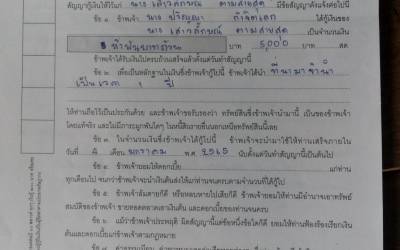 สัญญากู้เงินให้ไว้แก่ นาง เสาวลักษณ์ ตามสายสุด มีข้อสัญญาดังจะกล่าวต่อไปนี้
ข้อ ๑. ข้าพเจ้า นาง ปริญญา ได้กู้เงินของ
นาง เสาวลักษณ์ ตามสายสุด เป็นจำนวนเงิน
ห้าพันบาทถ้วน บาท 5,000 สต.
ข้าพเจ้าได้รับเงินไปครบถ้วนเสร็จแล้วตั้งแต่วันทำสัญญานี้
ข้อ ๒. เพื่อเป็นหลักฐานในเงินซึ่งข้าพเจ้ากู้ไปนี้ ข้าพเจ้าได้นำ ที่นามาจำนำ
เป็นเวลา 1 ปี
ให้ท่านถือไว้เป็นประกันด้วย และข้าพเจ้าขอรับรองว่า ทรัพย์สินซึ่งข้าพเจ้านำมานี้ เป็นของข้าพเจ้า
โดยแท้จริง และไม่มีภาระผูกพันใดๆ ในหนี้สินรายอื่นนอกเหนือทรัพย์สินนี้เลย
ข้อ ๓. ในจำนวนเงินซึ่งข้าพเจ้าได้กู้ไปนี้ ข้าพเจ้าจะนำมาใช้ให้ท่านเสร็จภายใน
วันที่ 4 เดือน มกราคม พ.ศ. 2565 นับตั้งแต่วันทำสัญญานี้เป็นต้นไป
ข้อ ๔. ข้าพเจ้ายอมให้ดอกเบี้ย แก่ท่าน
ทุกเดือนไป จนกว่าข้าพเจ้าจะนำเงินต้นส่งให้แก่ท่านจนครบตามจำนวนที่ได้กู้ไป
ข้อ ๕. ถ้าข้าพเจ้าล้มตายก็ดี หรือหลบหายไปเสียก็ดี ข้าพเจ้ายอมให้ท่านมีอำนาจเอาทรัพย์
สมบัติของข้าพเจ้า ขายทอดตลาดเอาเงินต้น และดอกเบี้ยของท่านจนครบ
ข้อ ๖. แม้ว่าข้าพเจ้าประพฤติ ผิดสัญญานี้แต่ข้อหนึ่งข้อใดก็ดี ยอมให้ท่านฟ้องร้องเรียกเงิน
ต้นและดอกเบี้ยแก่ข้าพเจ้าตามกฎหมาย